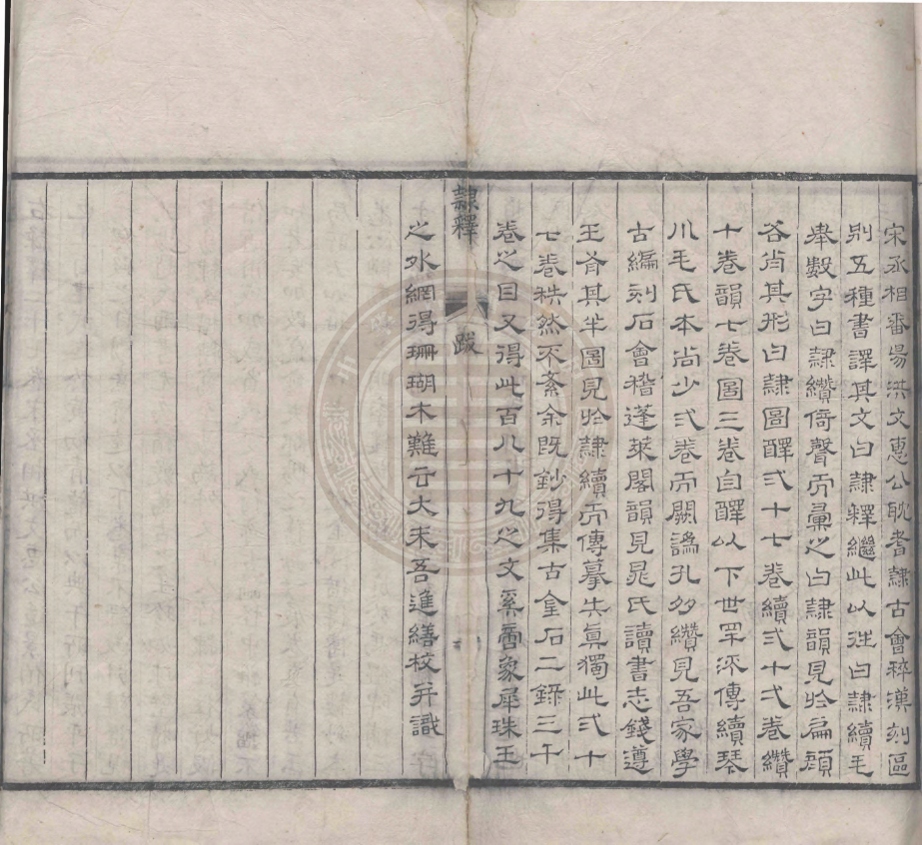 宋丞相番昜洪文惠公耽耆隷古會稡漢刻區
別五種書譯其文曰隷釋繼此以往曰隷續毛
舉數字曰隷纘倚聲而彙之曰隷韻見於扁顏
各肖其形曰隷圖醳弍十七卷續弍十弌卷纘
十卷韻七卷圖三卷自醳以下世罕㳅傳續琴
川毛氏本尚少弍卷而闕譌孔多纘見吾家學
古編刻石會稽蓬萊閣韻見晁氏讀書志錢遵
王有其半圖見於隷續而傳摹失眞獨此弍十
七卷秩然不紊余既鈔得集古金石二錄三千
卷之目又得此百八十九之文奚啻象犀珠玉
隷釋 跋
之外網得珊瑚木難云大末吾進繕校并識